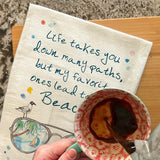 Life takes you
down many paths,
but my favorite
ones lead to
Beac